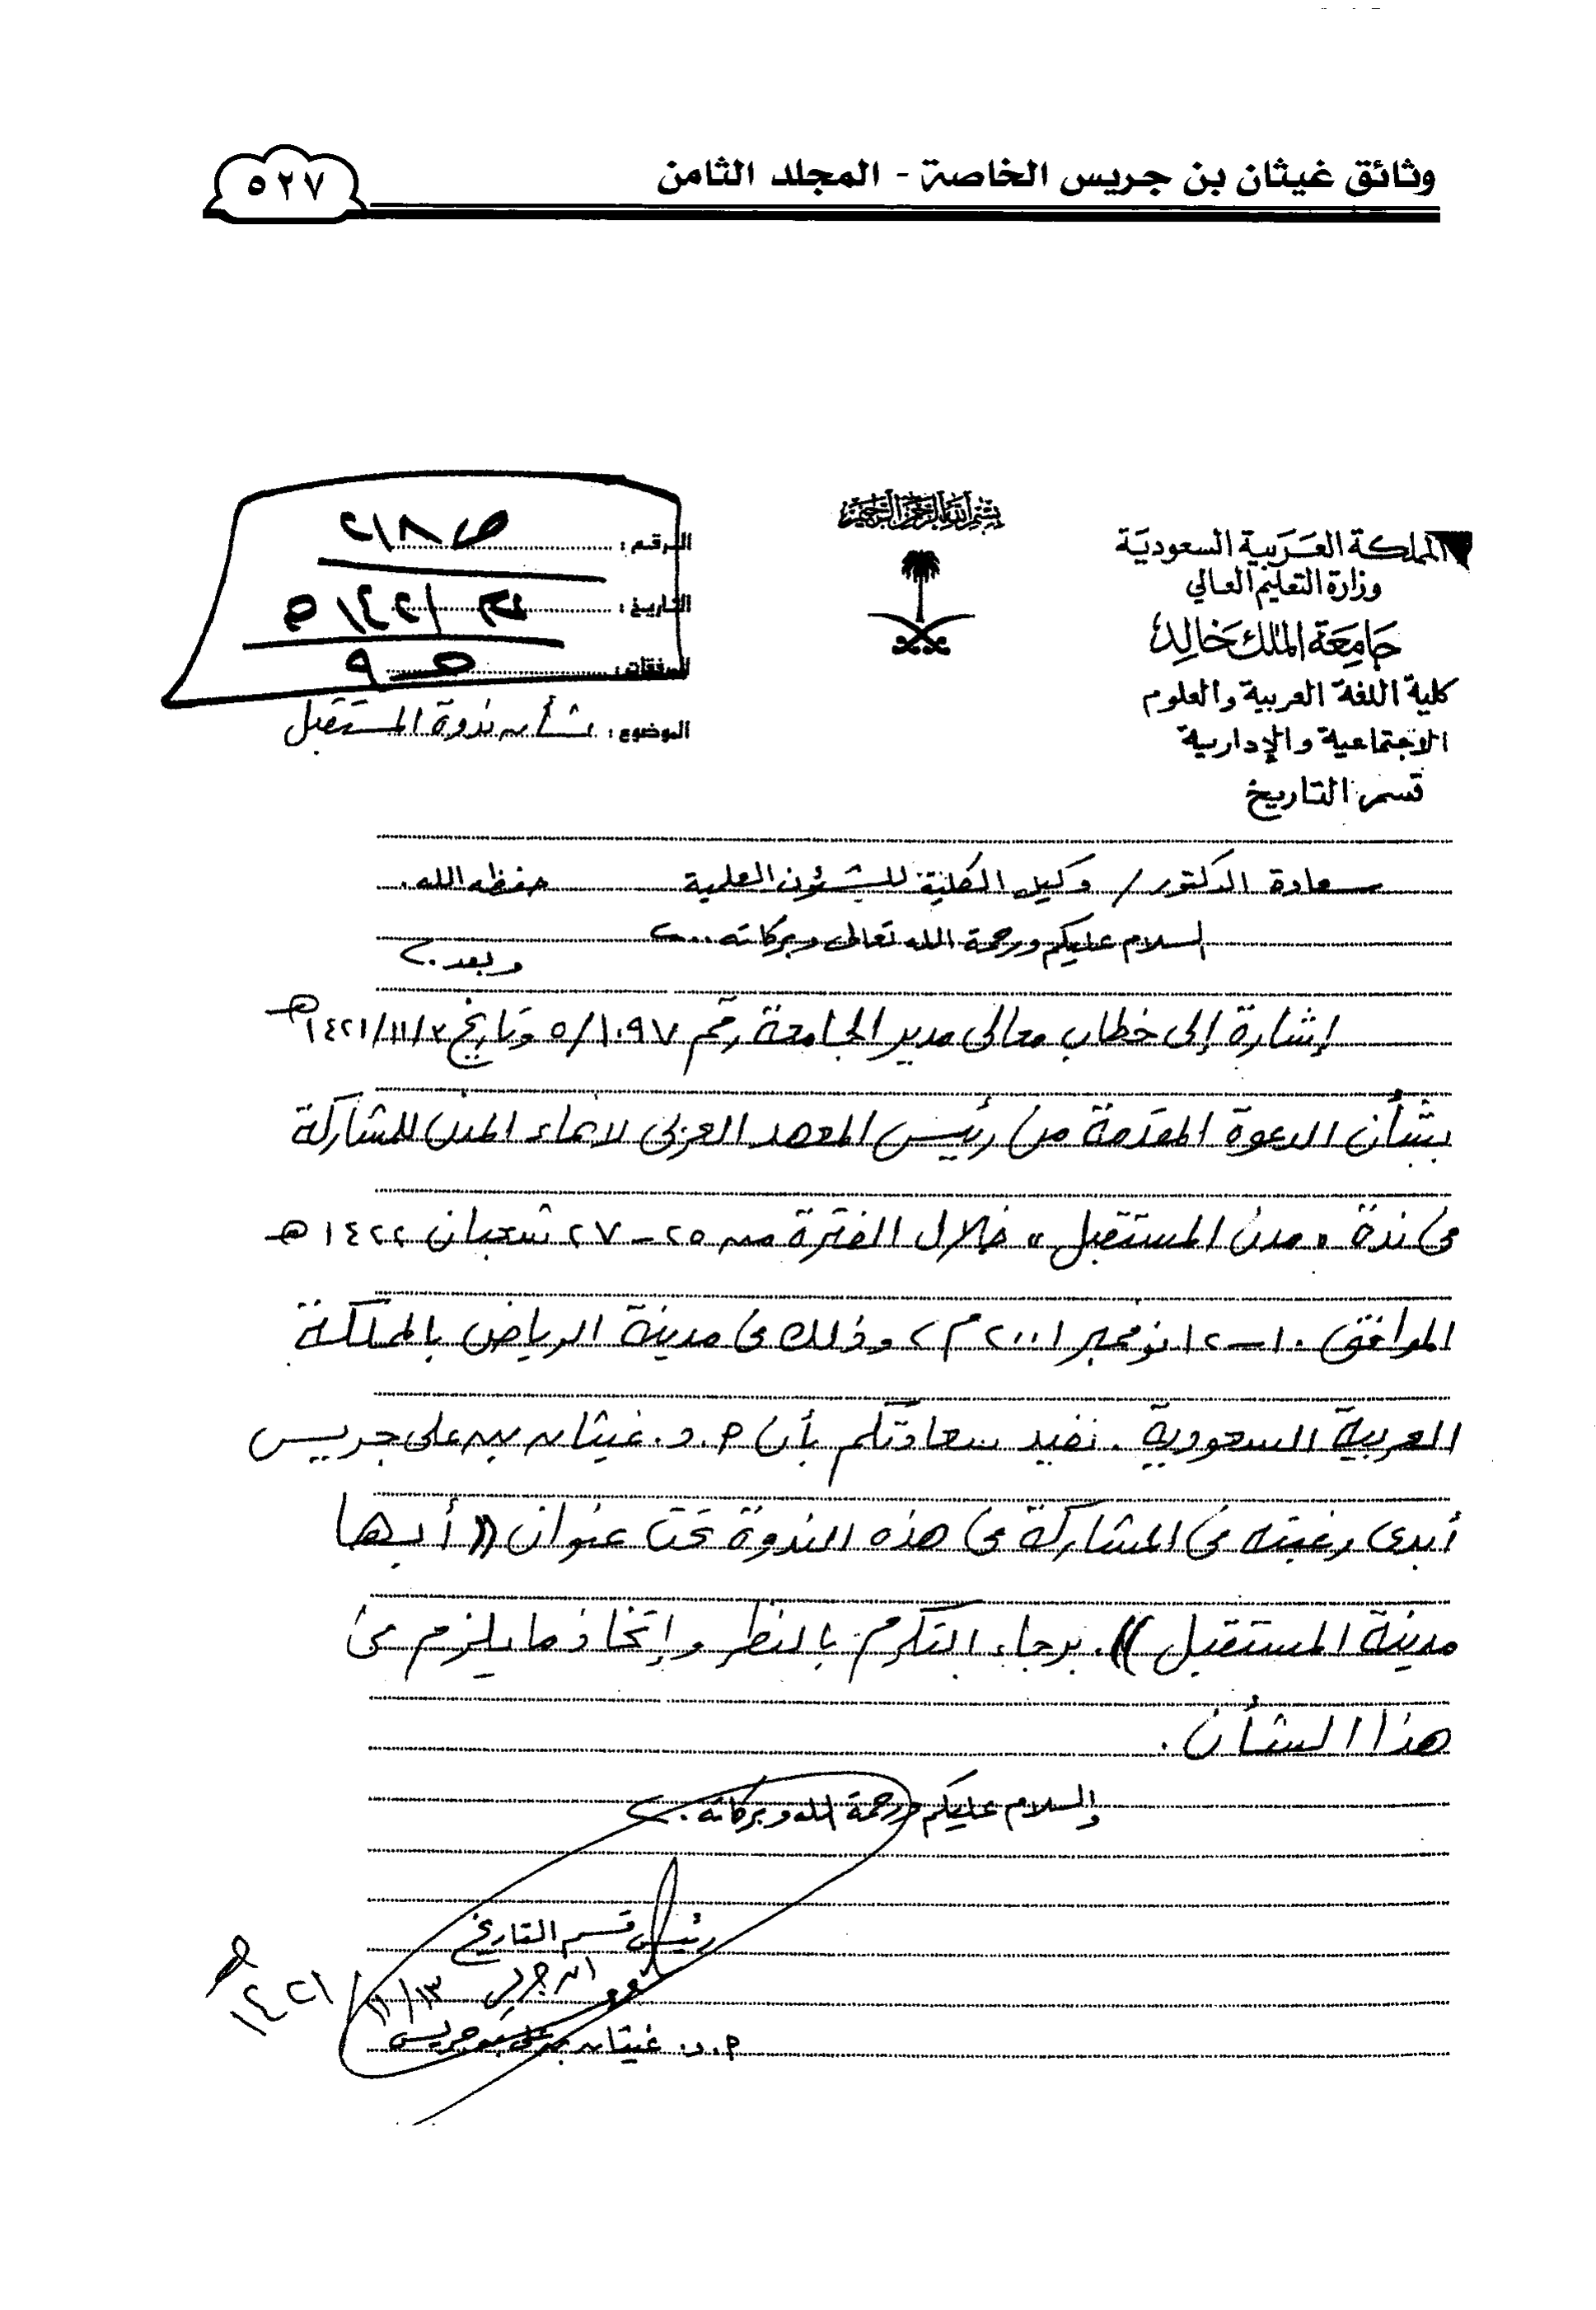 وثائق غيثان بن جريس الخاصة - المجلد الثامن
٥٢٧
بسم الله الرحمن الرحيم
المملكة العربية السعودية
وزارة التعليم العالي
جامعة الملك خالد
كلية اللغة العربية والعلوم
الاجتماعية والإدارية
قسم التاريخ
الرقم :
التاريخ :
المرفقات :
الموضوع : بشأن ندوة المستقبل
سعادة الدكتور / وكيل الكلية للشئون العلمية حفظه الله .
السلام عليكم ورحمة الله تعالى وبركاته ..
وبعد .
إشارة إلى خطاب معالي مدير الجامعة رقم ٥/١٠٩٧ وتاريخ ١٤٢١/١١/٢هـ
بشأن الدعوة المقدمة من رئيس المعهد العربي لإنماء المدن للمشاركة
في ندة " مدن المستقبل " خلال الفترة من ٢٥ - ٢٧ شعبان ١٤٢٢هـ
الموافق ١٠ - ١٢ نوفمبر ٢٠٠١م ، وذلك في مدينة الرياض بالمملكة
العربية السعودية . نفيد سعادتكم بأن أ.د. غيثان بن علي جريس
أبدى رغبته في المشاركة في هذه الندوة تحت عنوان (( أبها
مدينة المستقبل )). برجاء التكرم بالنظر وإتخاذ ما يلزم في
هذا الشأن .
والسلام عليكم ورحمة الله وبركاته .
رئيس قسم التاريخ
١١/١٣/ ١٤٢١هـ
أ.د. غيثان بن علي بن جريس